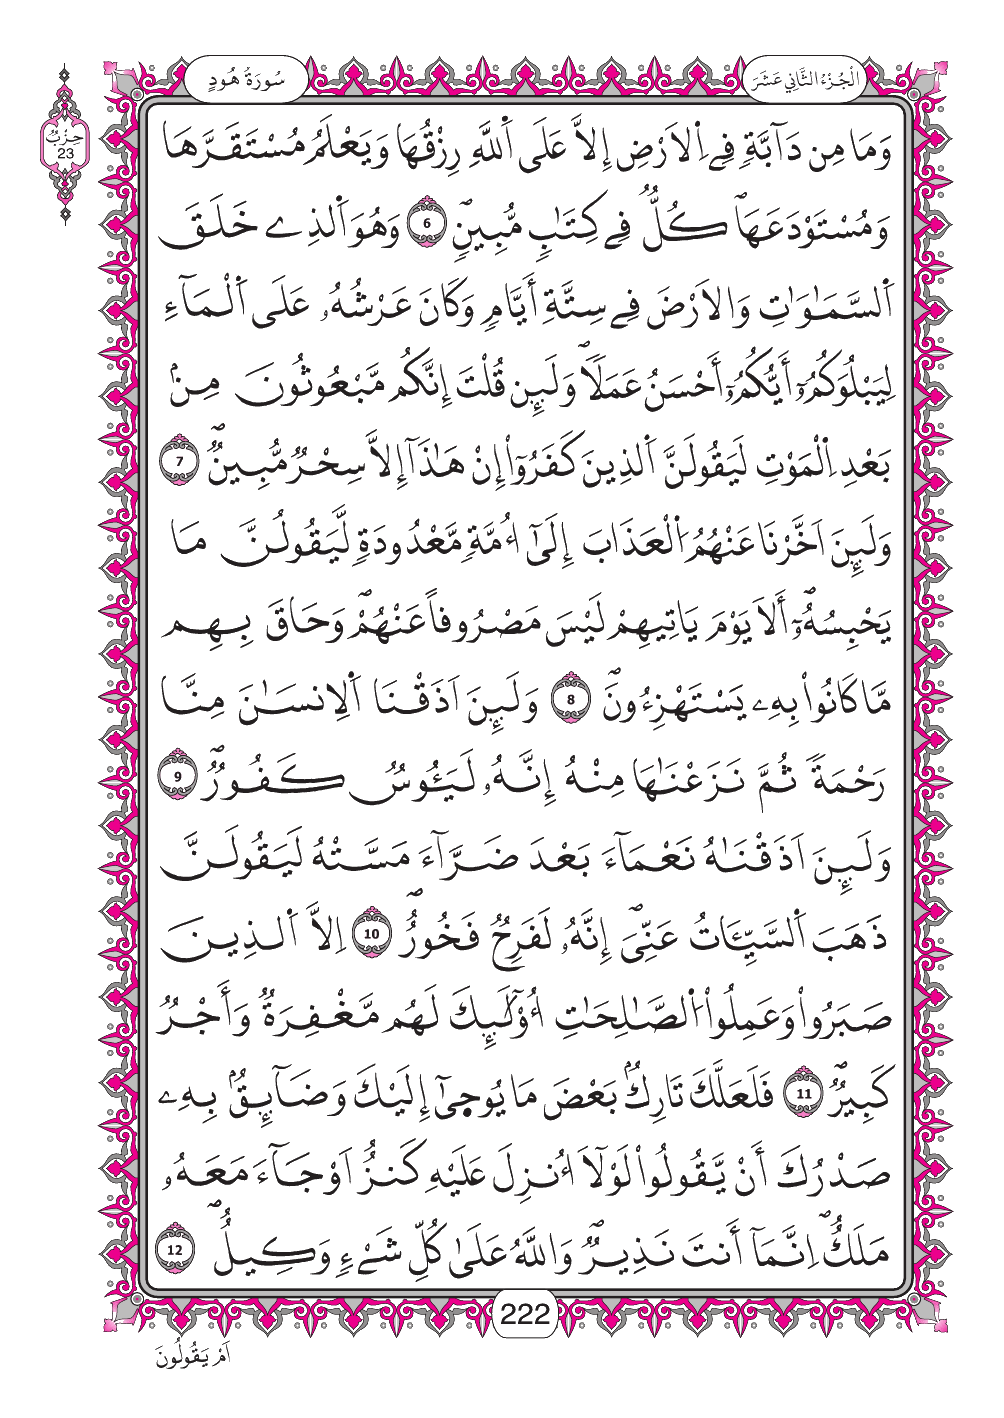 الْجُزْءُ الثَّانِي عَشَرَ
سُورَةُ هُودٍ
حِزْبٌ
23
وَمَا مِن دَآبَّةٖ فِے اِ۬لَارْضِ إِلَّا عَلَى اَ۬للَّهِ رِزْقُهَا وَيَعْلَمُ مُسْتَقَرَّهَا
وَمُسْتَوْدَعَهَاۖ كُلّٞ فِے كِتَٰبٖ مُّبِينٖۖ 6 وَهُوَ اَ۬لذِے خَلَقَ
اَ۬لسَّمَٰوَٰتِ وَالَارْضَ فِے سِتَّةِ أَيَّامٖ وَكَانَ عَرْشُهُۥ عَلَى اَ۬لْمَآءِ
لِيَبْلُوَكُمُۥٓ أَيُّكُمُۥٓ أَحْسَنُ عَمَلاٗۖ وَلَئِن قُلْتَ إِنَّكُم مَّبْعُوثُونَ مِنۢ
بَعْدِ اِ۬لْمَوْتِ لَيَقُولَنَّ اَ۬لذِينَ كَفَرُوٓاْ إِنْ هَٰذَآ إِلَّا سِحْرٞ مُّبِينٞۖ 7
وَلَئِنَ اَخَّرْنَا عَنْهُمُ اُ۬لْعَذَابَ إِلَىٰٓ أُمَّةٖ مَّعْدُودَةٖ لَّيَقُولُنَّ مَا
يَحْبِسُهُۥٓۖ أَلَا يَوْمَ يَاتِيهِمْ لَيْسَ مَصْرُوفاً عَنْهُمْۖ وَحَاقَ بِهِم
مَّا كَانُواْ بِهِۦ يَسْتَهْزِءُونَۖ 8 وَلَئِنَ اَذَقْنَا اَ۬لِانسَٰنَ مِنَّا
رَحْمَةٗ ثُمَّ نَزَعْنَٰهَا مِنْهُ إِنَّهُۥ لَيَـُٔوسٞ كَفُورٞۖ 9
وَلَئِنَ اَذَقْنَٰهُ نَعْمَآءَ بَعْدَ ضَرَّآءَ مَسَّتْهُ لَيَقُولَنَّ
ذَهَبَ اَ۬لسَّيِّـَٔاتُ عَنِّيَۖ إِنَّهُۥ لَفَرِحٞ فَخُورٌۖ 10 اِلَّا اَ۬لذِينَ
صَبَرُواْ وَعَمِلُواْ اُ۬لصَّٰلِحَٰتِ أُوْلَٰٓئِكَ لَهُم مَّغْفِرَةٞ وَأَجْرٞ
كَبِيرٞۖ 11 فَلَعَلَّكَ تَارِكُۢ بَعْضَ مَا يُوحَىٰٓ إِلَيْكَ وَضَآئِقُۢ بِهِۦ
صَدْرُكَ أَنْ يَّقُولُواْ لَوْلَآ أُنزِلَ عَلَيْهِ كَنزٌ اَوْ جَآءَ مَعَهُۥ
مَلَكٌۖ اِنَّمَآ أَنتَ نَذِيرٞۖ وَاللَّهُ عَلَىٰ كُلِّ شَےْءٖ وَكِيلٌۖ 12
222
اَمْ يَقُولُونَ